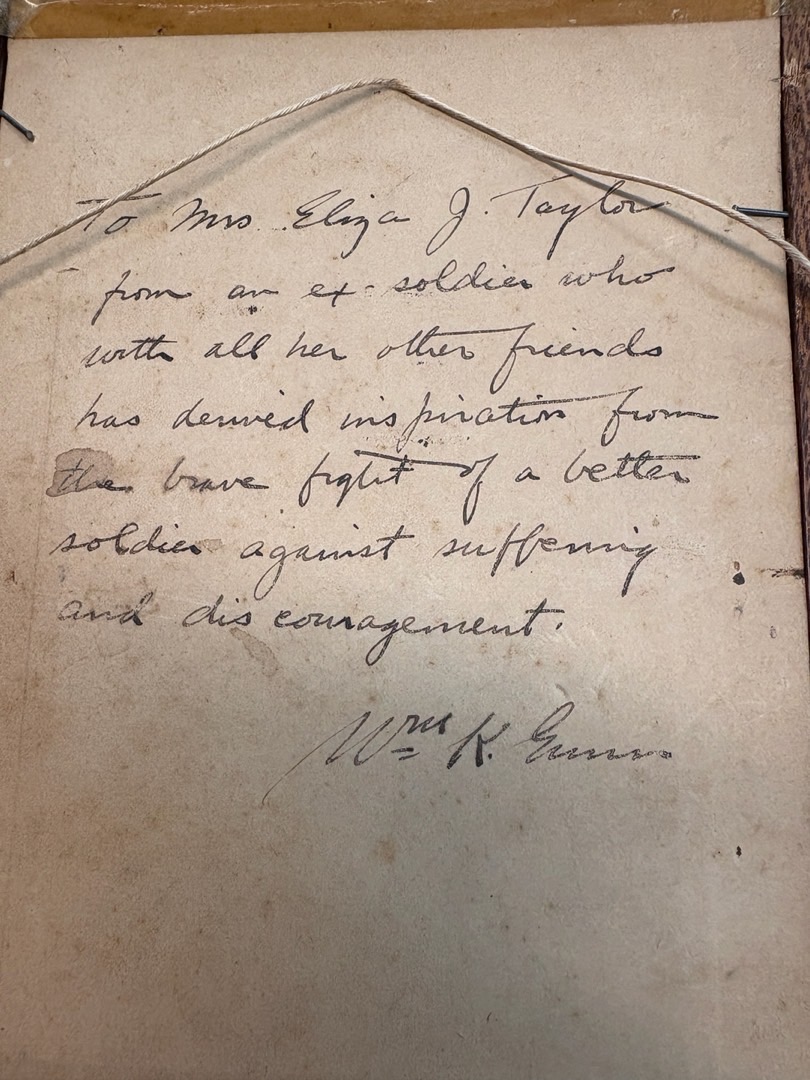 To Mrs. Eliza J. Taylor
from an ex-soldier who
with all her other friends
has derived inspiration from
the brave fight of a better
soldier against suffering
and discouragement.
Wm K.